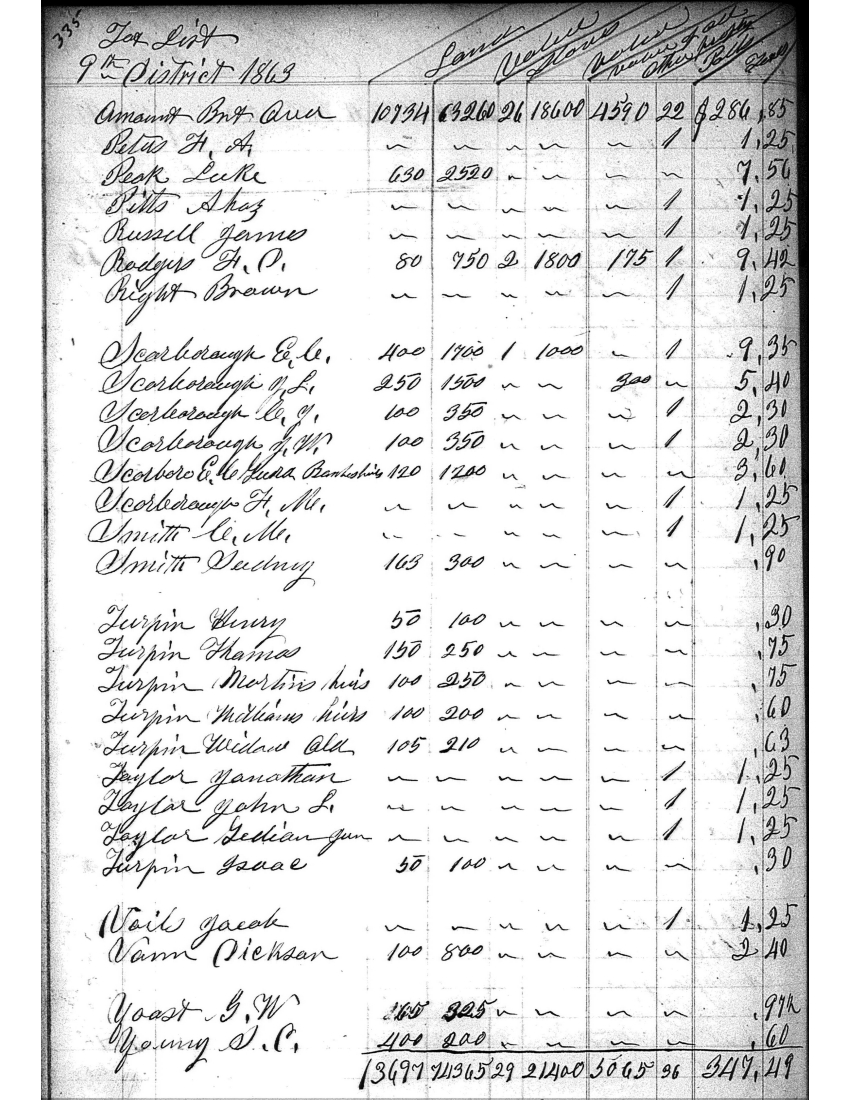 335
Tax List
9th District 1863
Land Value Slaves Value Value of all other property Polls Total
Amount Brt Over 10734 63260 26 18600 4590 22 $286,85
Peters H. A. ~ ~ ~ ~ ~ 1 1,25
Peak Luke 630 2520 ~ ~ ~ ~ 7,56
Pitts Ahaz ~ ~ ~ ~ ~ 1 1,25
Russell James ~ ~ ~ ~ ~ 1 1,25
Rodgers H. C. 80 750 2 1800 175 1 9,42
Right Brown ~ ~ ~ ~ ~ 1 1,25
Scarborough E. C. 400 1700 1 1000 ~ 1 9,35
Scarborough J. L. 250 1500 ~ ~ 300 ~ 5,40
Scarborough C. J. 100 350 ~ ~ ~ 1 2,30
Scarborough J. W. 100 350 ~ ~ ~ 1 2,30
Scarboro E. C. 120 1200 ~ ~ ~ ~ 3,60
Scarborough H. Mc. ~ ~ ~ ~ ~ 1 1,25
Smith C. Mc. ~ ~ ~ ~ ~ 1 1,25
Smith Sidney 163 300 ~ ~ ~ ~ ,90
Turpin Henry 50 100 ~ ~ ~ ~ ,30
Turpin Thomas 150 250 ~ ~ ~ ~ ,75
Turpin Martins heirs 100 250 ~ ~ ~ ~ ,75
Turpin Williams heirs 100 200 ~ ~ ~ ~ ,60
Turpin Widow Old 105 210 ~ ~ ~ ~ ,63
Taylor Jonathan ~ ~ ~ ~ ~ 1 1,25
Taylor John L. ~ ~ ~ ~ ~ 1 1,25
Taylor Gedian Jun ~ ~ ~ ~ ~ 1 1,25
Turpin Isaac 50 100 ~ ~ ~ ~ ,30
Vail Jacob ~ ~ ~ ~ ~ 1 1,25
Vann Dickson 100 800 ~ ~ ~ ~ 2,40
Yoast G. W 65 325 ~ ~ ~ ~ ,97½
Young S. C. 400 200 ~ ~ ~ ~ ,60
13697 74365 29 21400 5065 36 347,49